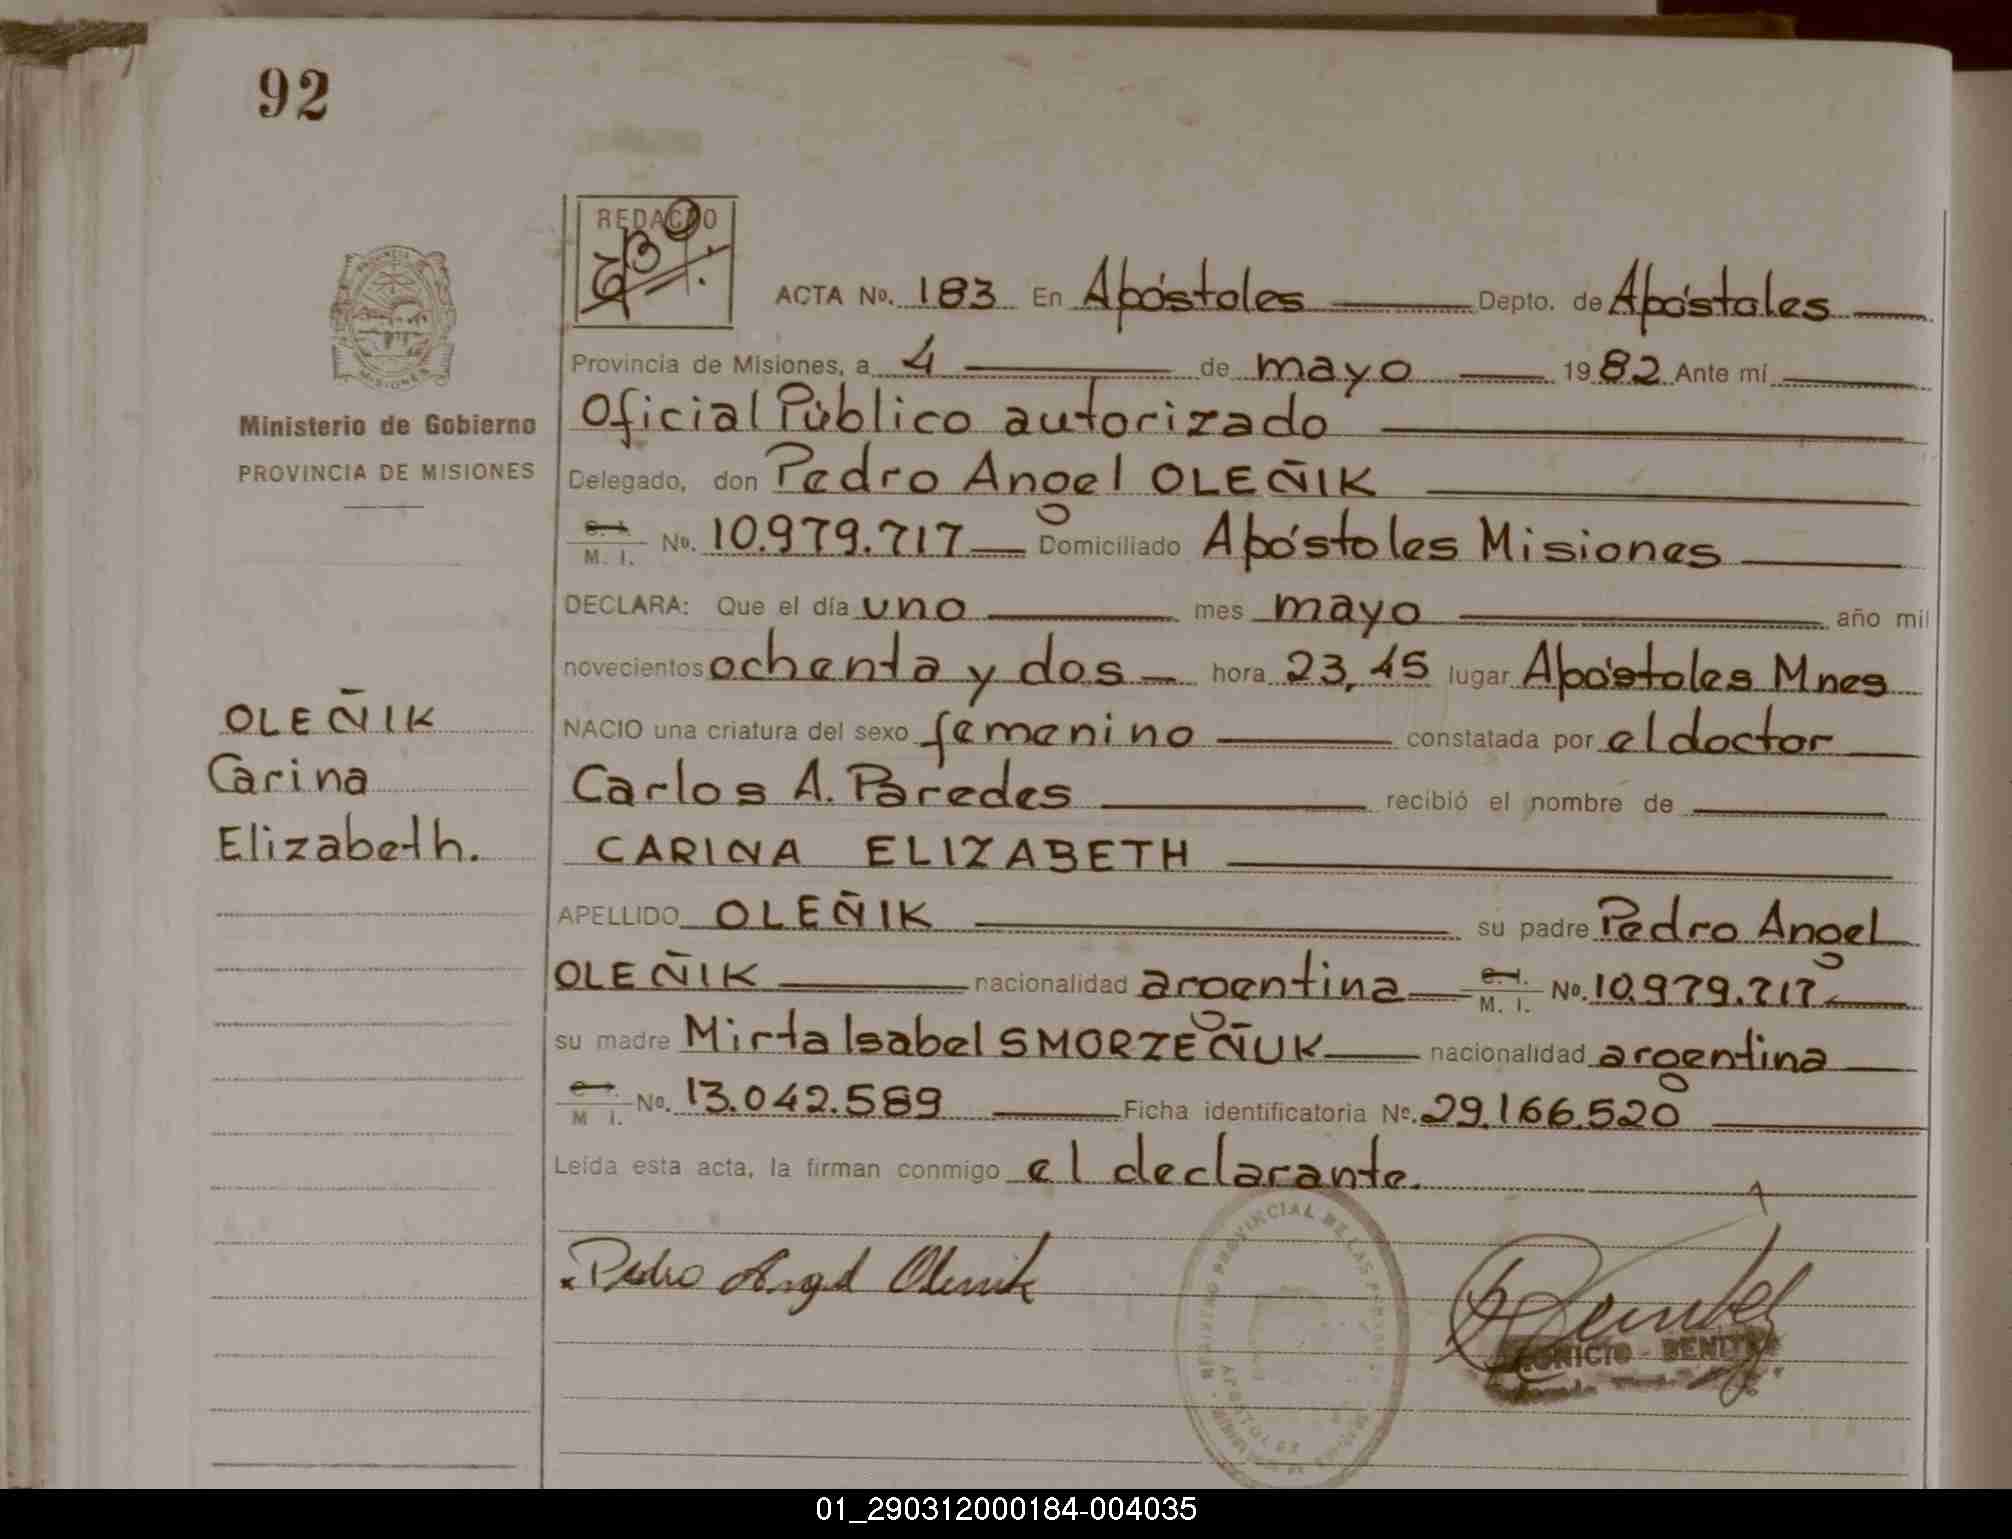 92
REDACTO
ACTA No. 183 En Apóstoles Depto. de Apóstoles
Provincia de Misiones, a 4 de mayo 1982 Ante mí
Oficial Público autorizado
Ministerio de Gobierno
PROVINCIA DE MISIONES
Delegado, don Pedro Angel OLEÑIK
M. I. No. 10.979.717 Domiciliado Apóstoles Misiones
DECLARA: Que el día uno mes mayo año mil
novecientos ochenta y dos hora 23,45 lugar Apóstoles Mnes
OLEÑIK
Carina
Elizabeth.
NACIO una criatura del sexo femenino constatada por el doctor
Carlos A. Paredes recibió el nombre de
CARINA ELIZABETH
APELLIDO OLEÑIK su padre Pedro Angel
OLEÑIK nacionalidad argentina M. I. No. 10.979.717
su madre Mirta Isabel SMORZEÑUK nacionalidad argentina
M I. No. 13.042.589 Ficha identificatoria No. 29.166.520
Leída esta acta, la firman conmigo el declarante.
Pedro Angel Olenik
REGISTRO PROVINCIAL DE LAS PERSONAS
APOSTOLES
MISIONES
01_290312000184-004035